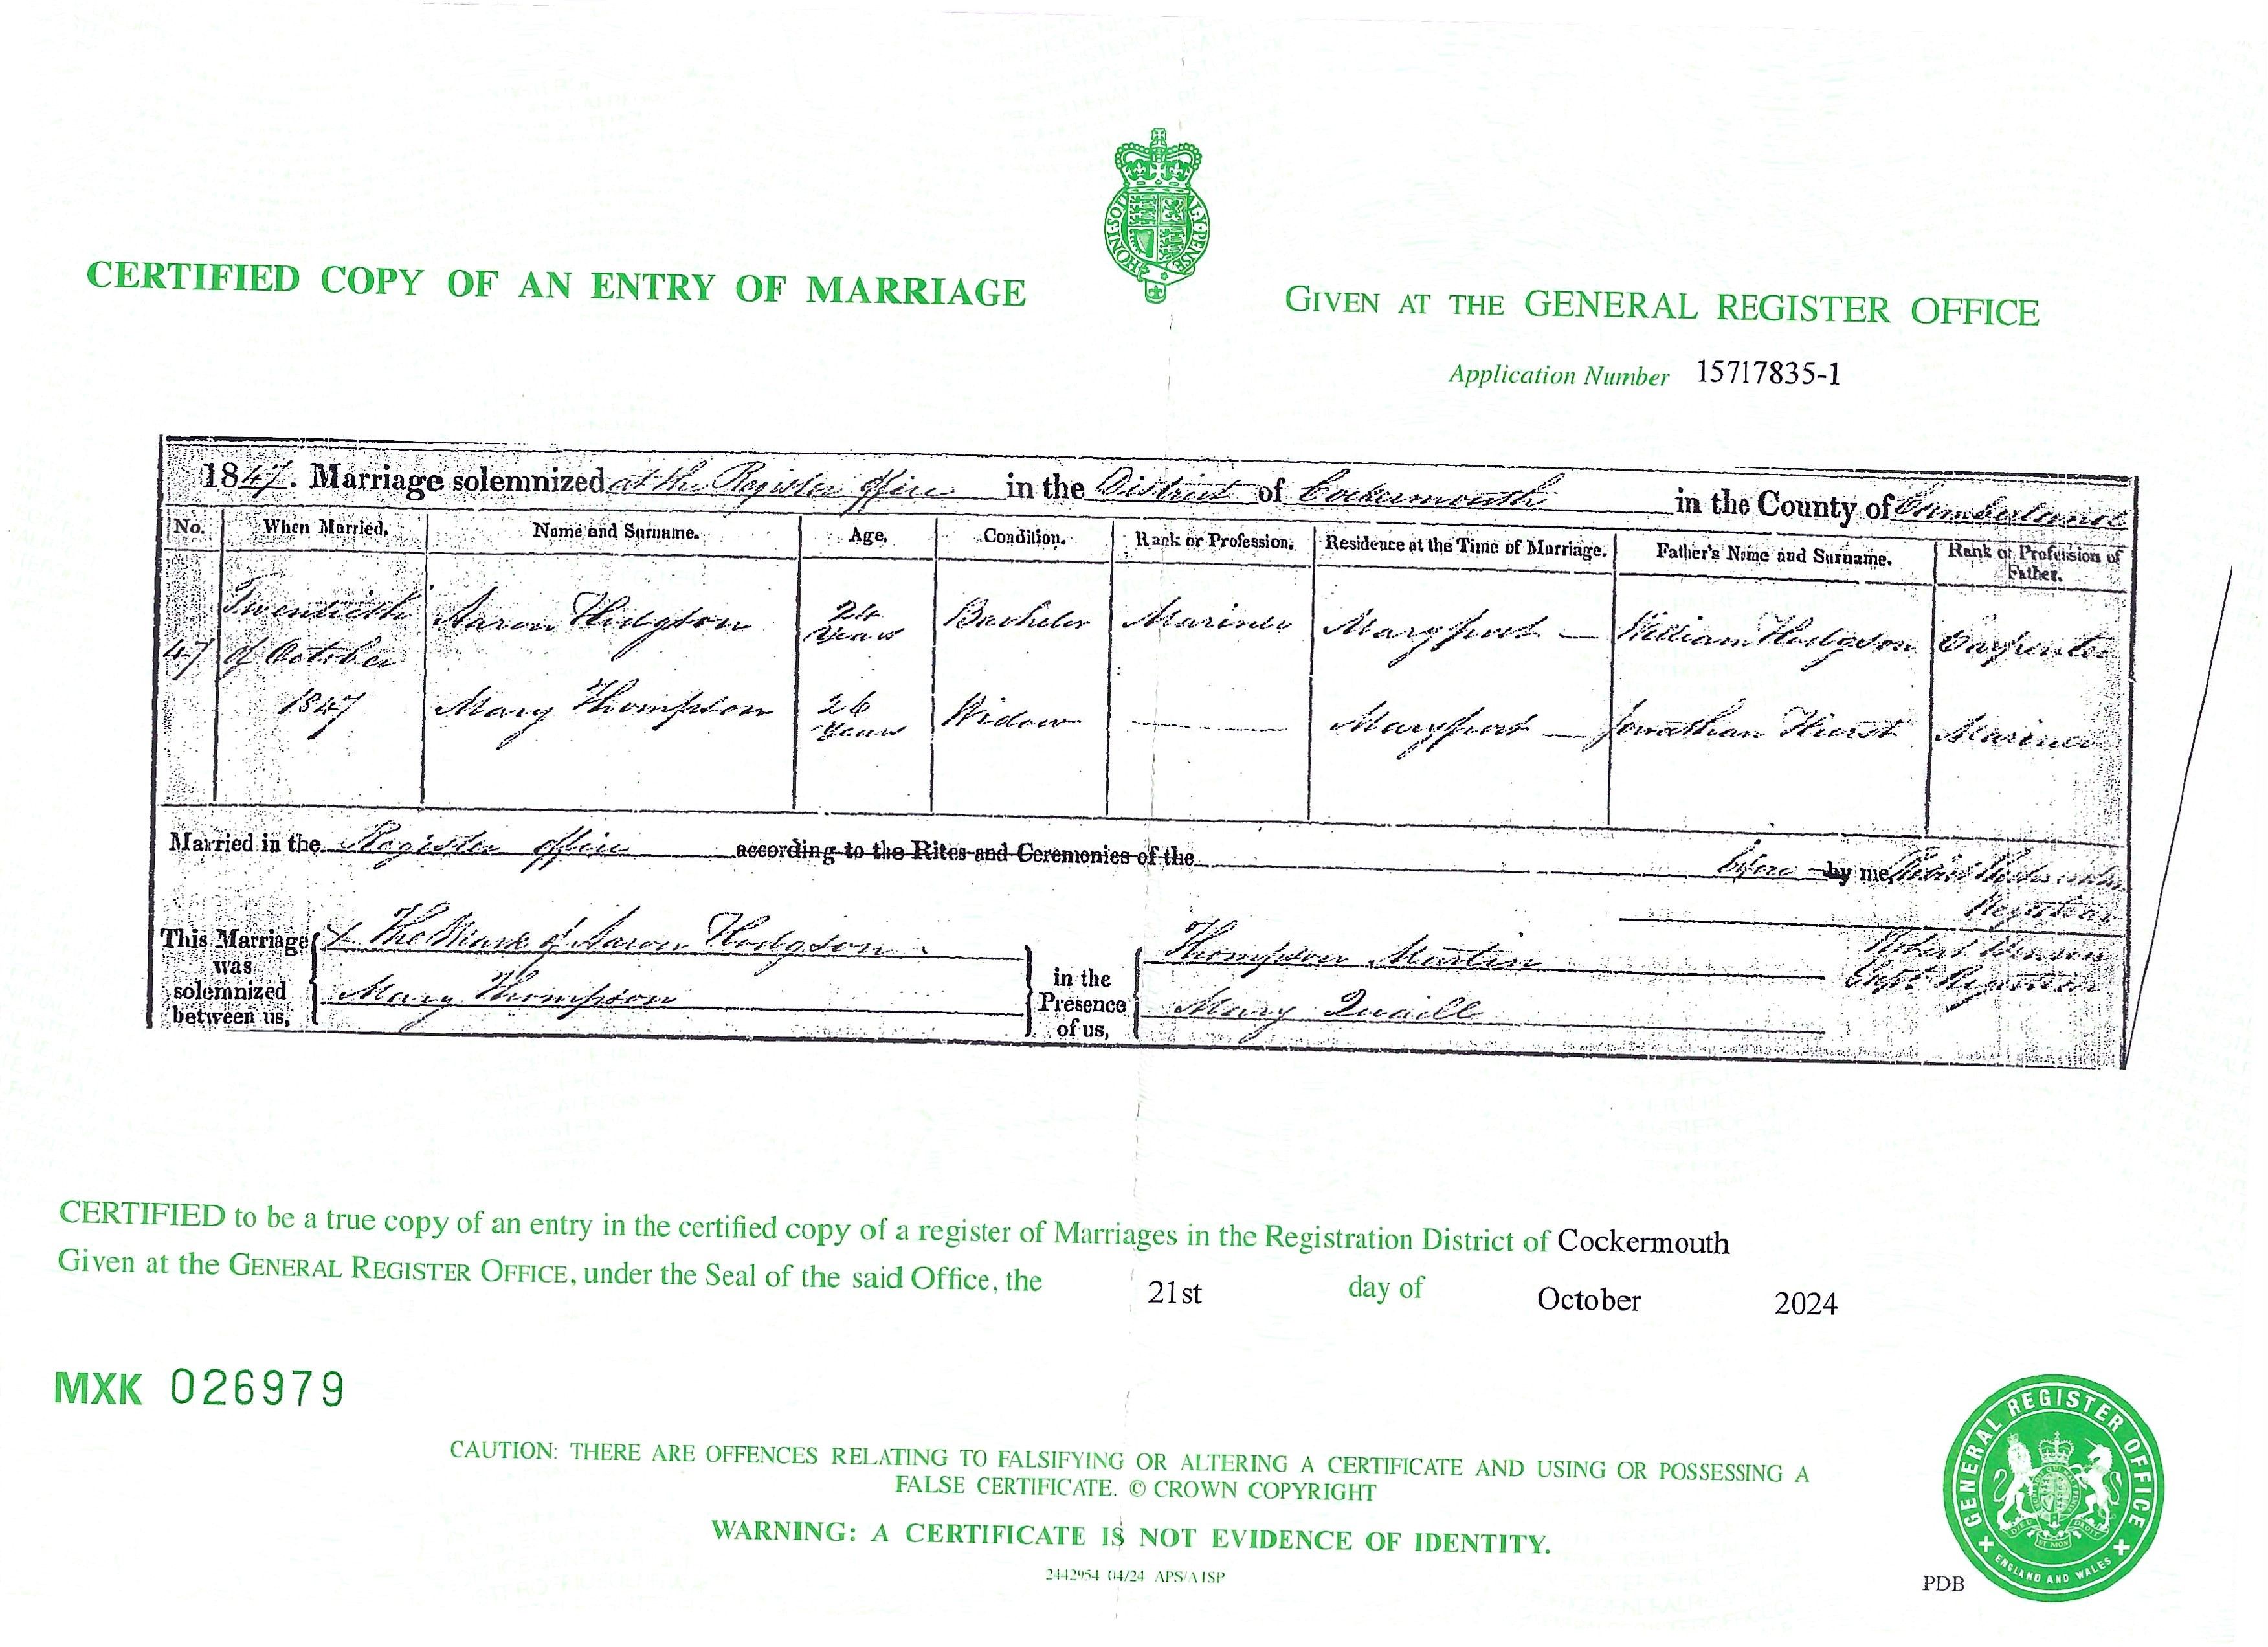 HONI SOI AL Y PENSE
CERTIFIED COPY OF AN ENTRY OF MARRIAGE
GIVEN AT THE GENERAL REGISTER OFFICE
Application Number 15717835-1
1847. Marriage solemnized at the Register Office in the District of Cockermouth in the County of Cumberland
No. When Married. Name and Surname. Age. Condition. Rank or Profession. Residence at the Time of Marriage. Father's Name and Surname. Rank or Profession of Father.
47 Twentieth of October 1847 Aaron Hodgson 24 Years Bachelor Mariner Maryport — William Hodgson Carpenter
Mary Thompson 26 Years Widow Maryport — Jonathan Hurst Mariner
Married in the Register Office according to the Rites and Ceremonies of the before by me,
Registrar
This Marriage was solemnized between us, X The Mark of Aaron Hodgson
Mary Thompson
in the Presence of us, Thompson Martin
Mary Quaill
Robert Benson
Supt Registrar
CERTIFIED to be a true copy of an entry in the certified copy of a register of Marriages in the Registration District of Cockermouth
Given at the GENERAL REGISTER OFFICE, under the Seal of the said Office, the 21st day of October 2024
MXK 026979
CAUTION: THERE ARE OFFENCES RELATING TO FALSIFYING OR ALTERING A CERTIFICATE AND USING OR POSSESSING A
FALSE CERTIFICATE. © CROWN COPYRIGHT
WARNING: A CERTIFICATE IS NOT EVIDENCE OF IDENTITY.
2442954 04/24 APS/A1SP
PDB
GENERAL REGISTER OFFICE
ENGLAND AND WALES